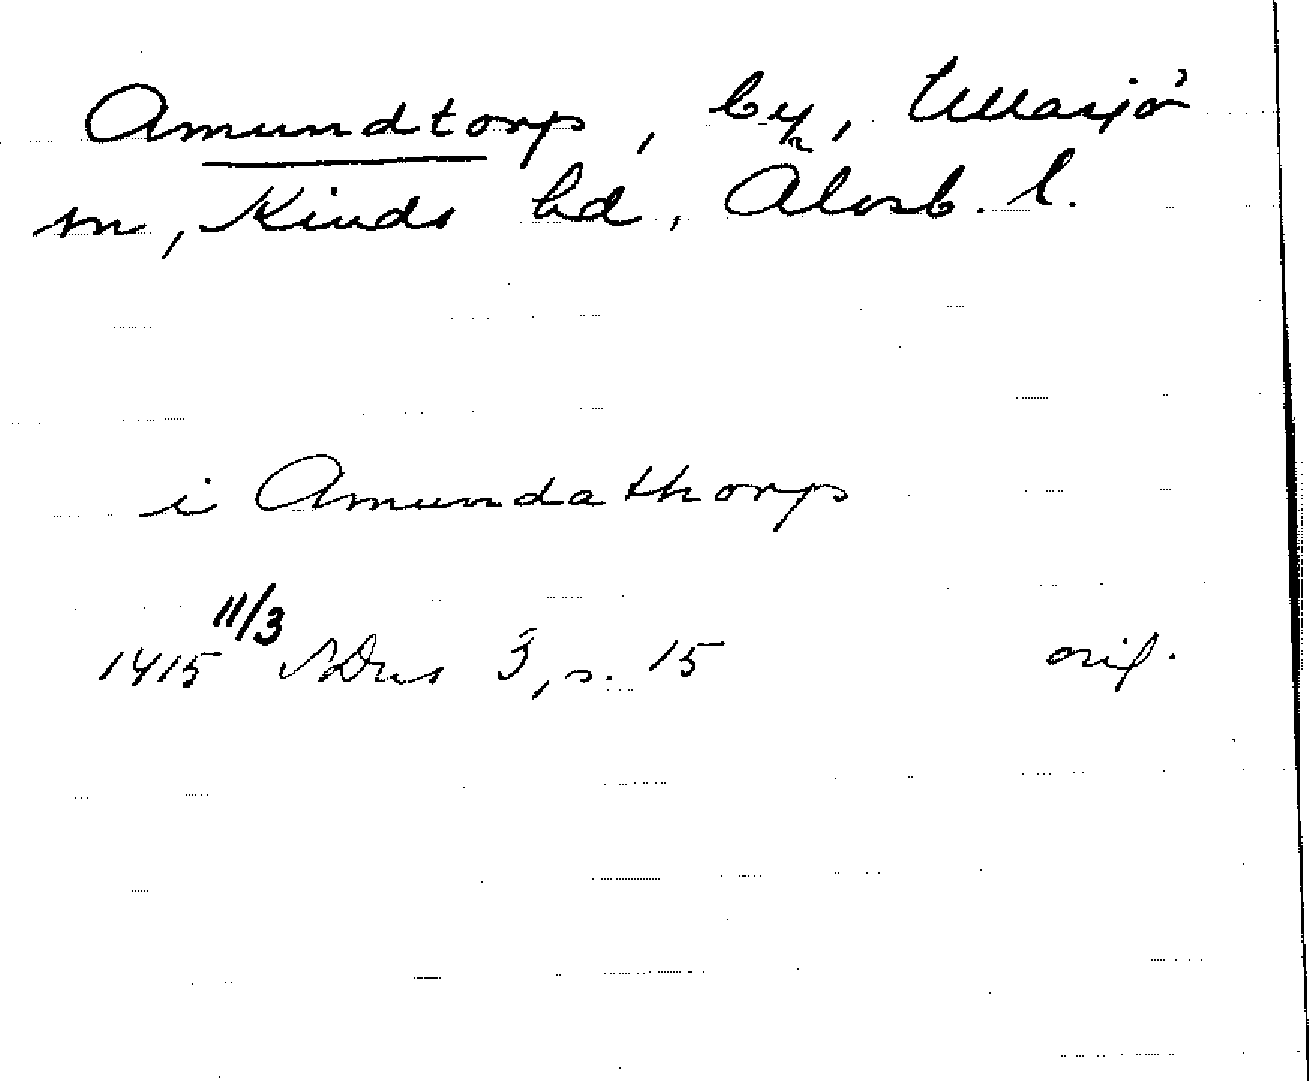 Amundtorp, by, Ullasjö
sn, Kinds hd, Älvsb. l.
i Amundathorp
1415 11/3 SDns 3, s. 15 orig.